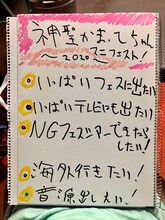 神聖かまってちゃん
～2020マニフェスト！
いっぱいフェスに出たい
いっぱいテレビにも出たい
NGフェスツアーできたらしたい！
海外行きたい！
音源出したい！